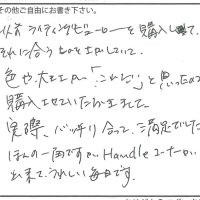 その他ご自由にお書き下さい。
以前ライティングビューローを購入して、
それに合うものを探していて、
色や大きさが「これだ!」と思ったので
購入させていただきました。
実際、バッチリ合って、満足でした。
ほんの一角ですがHandleコーナーが
出来て、うれしい毎日です。